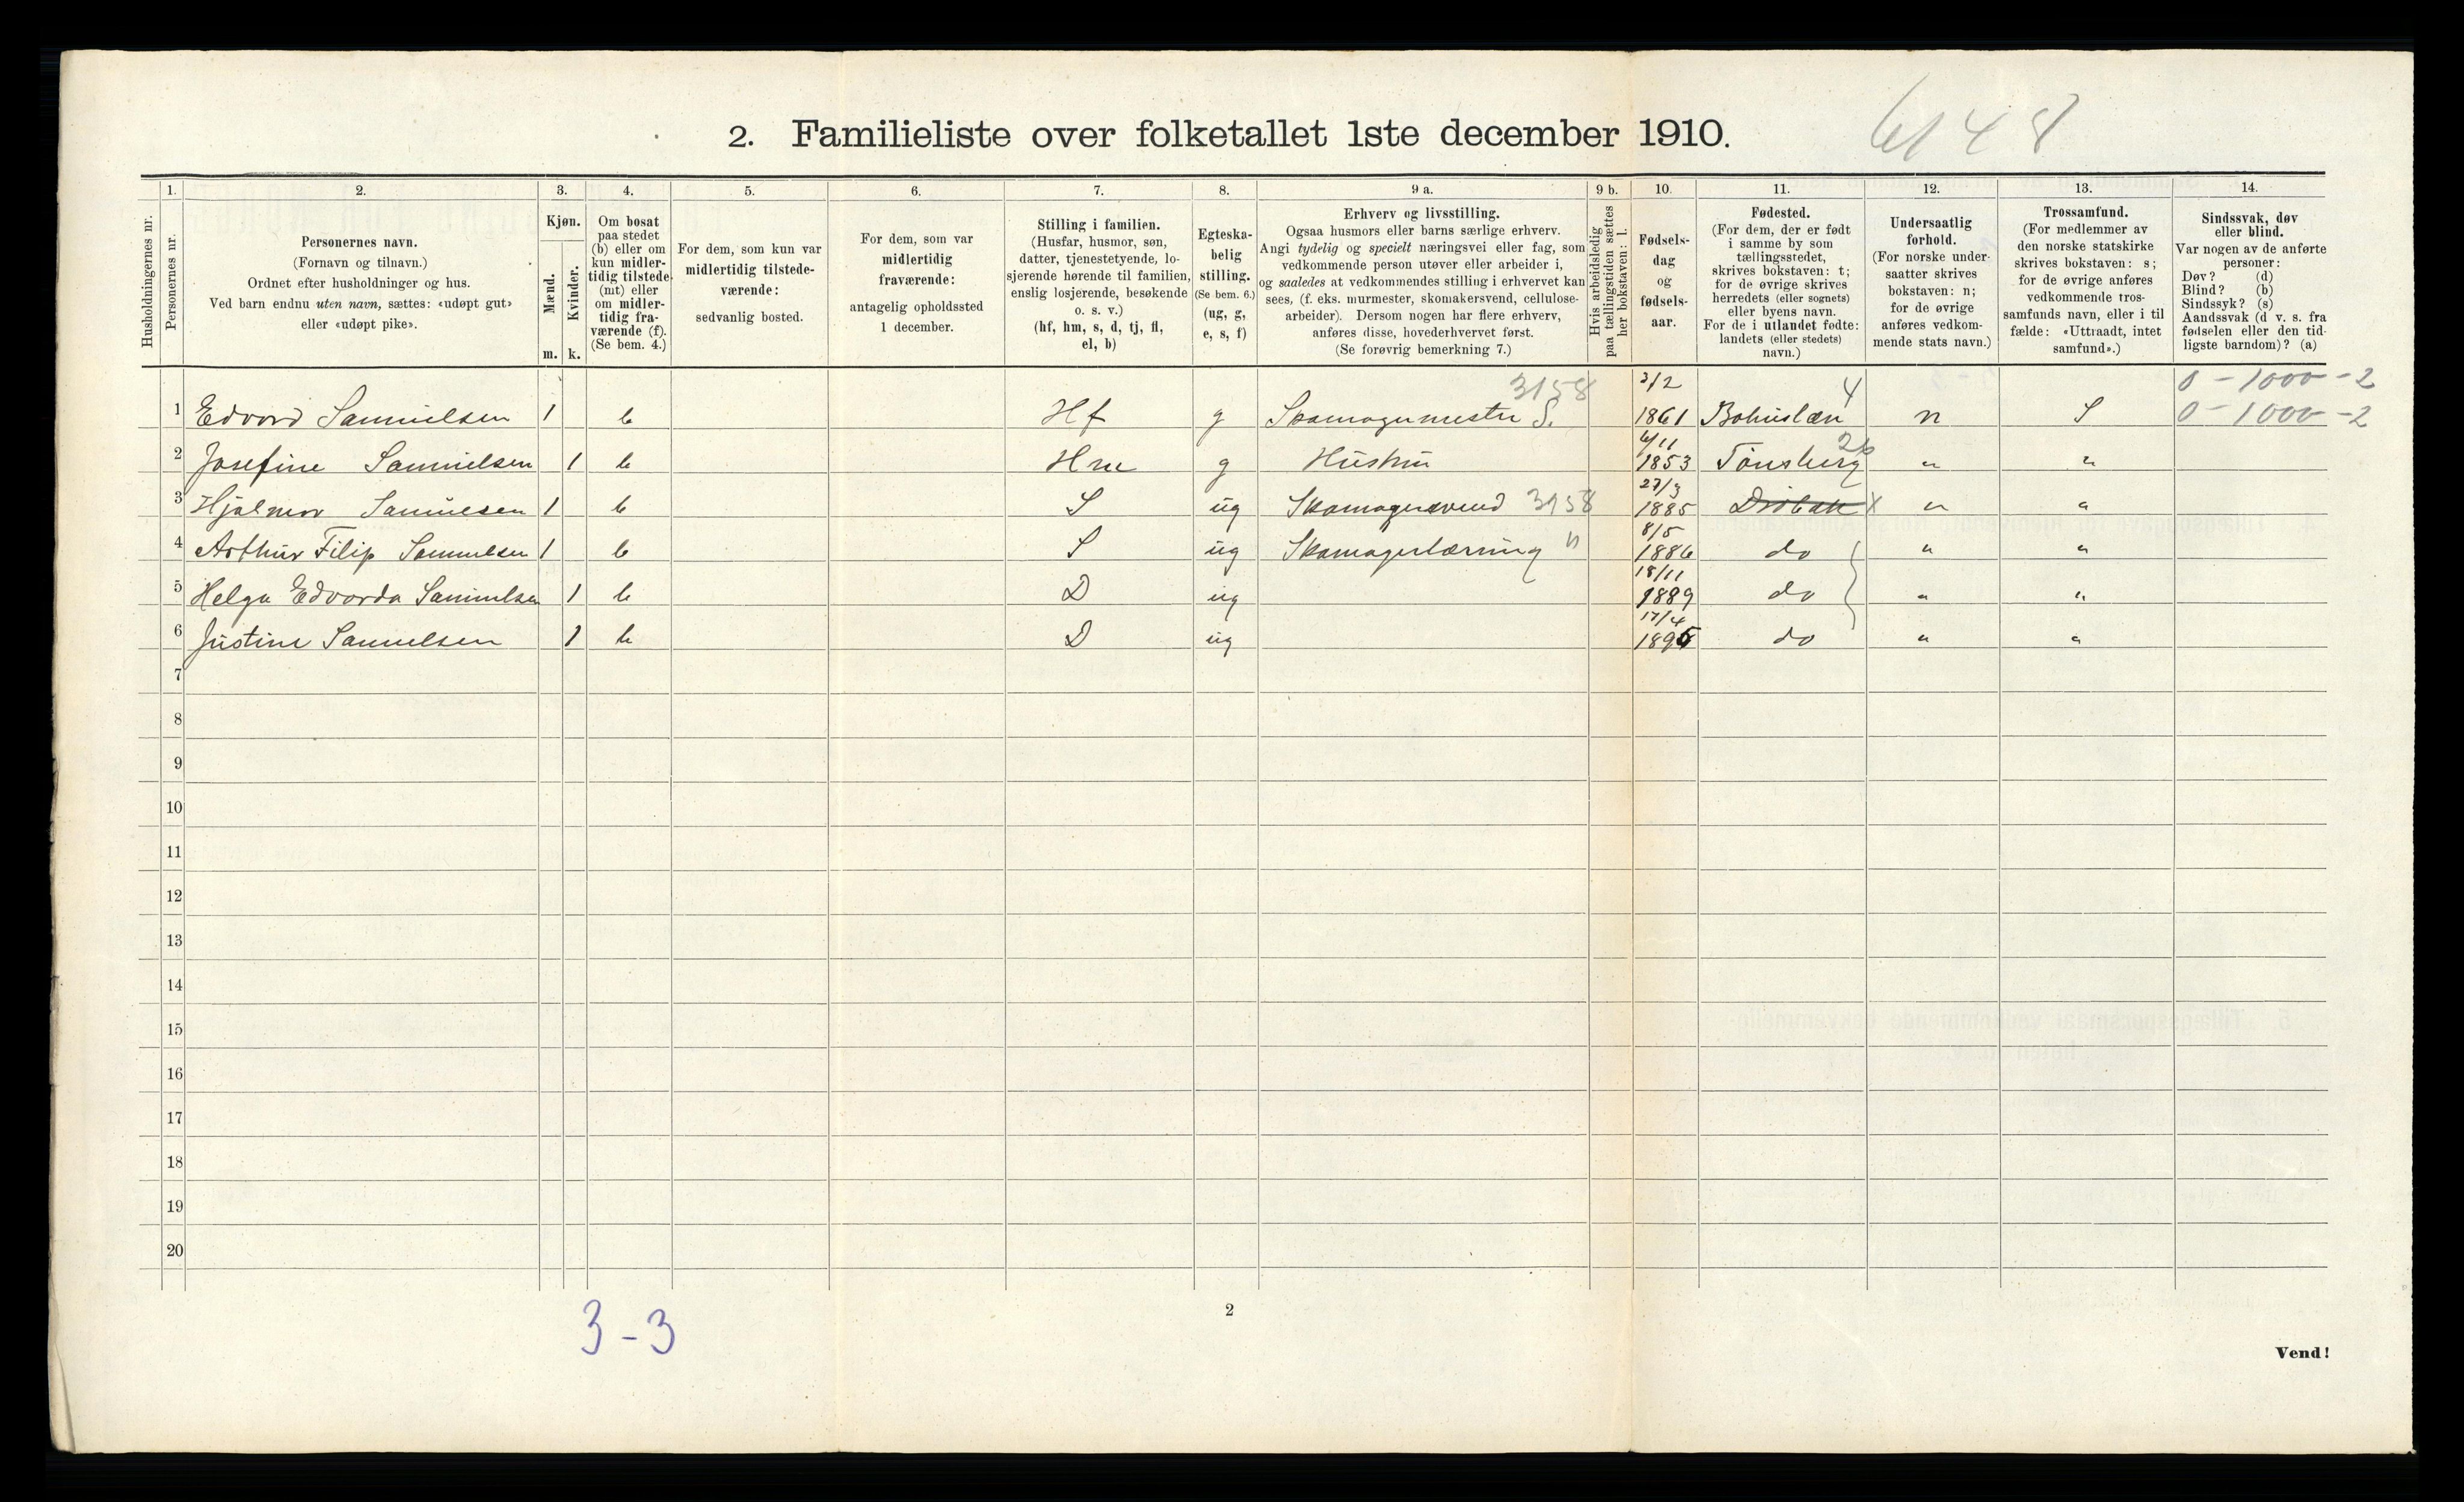 2. Familieliste over folketallet 1ste december 1910.
6148
Husholdningernes nr.
1.
Personernes nr.
2.
Personernes navn.
(Fornavn og tilnavn.)
Ordnet efter husholdninger og hus.
Ved barn endnu uten navn, sættes: «udøpt gut»
eller «udøpt pike».
3.
Kjøn.
Mænd.
Kvinder.
m. k.
4.
Om bosat
paa stedet
(b) eller om
kun midler-
tidig tilstede
(mt) eller
om midler-
tidig fra-
værende (f).
(Se bem. 4.)
5.
For dem, som kun var
midlertidig tilstede-
værende:
sedvanlig bosted.
6.
For dem, som var
midlertidig
fraværende:
antagelig opholdssted
1 december.
7.
Stilling i familien.
(Husfar, husmor, søn,
datter, tjenestetyende, lo-
sjerende hørende til familien,
enslig losjerende, besøkende
o. s. v.)
(hf, hm, s, d, tj, fl,
el, b)
8.
Egteska-
belig
stilling.
(Se bem. 6.)
(ug, g,
e, s, f)
9 a.
Erhverv og livsstilling.
Ogsaa husmors eller barns særlige erhverv.
Angi tydelig og specielt næringsvei eller fag, som
vedkommende person utøver eller arbeider i,
og saaledes at vedkommendes stilling i erhvervet kan
sees, (f. eks. murmester, skomakersvend, cellulose-
arbeider). Dersom nogen har flere erhverv,
anføres disse, hovederhvervet først.
(Se forøvrig bemerkning 7.)
9 b.
Hvis arbeidsledig
paa tællingstiden sættes
her bokstaven: l.
10.
Fødsels-
dag
og
fødsels-
aar.
11.
Fødested.
(For dem, der er født
i samme by som
tællingsstedet,
skrives bokstaven: t;
for de øvrige skrives
herredets (eller sognets)
eller byens navn.
For de i utlandet fødte:
landets (eller stedets)
navn.)
12.
Undersaatlig
forhold.
(For norske under-
saatter skrives
bokstaven: n;
for de øvrige
anføres vedkom-
mende stats navn.)
13.
Trossamfund.
(For medlemmer av
den norske statskirke
skrives bokstaven: s;
for de øvrige anføres
vedkommende tros-
samfunds navn, eller i til
fælde: «Uttraadt, intet
samfund».)
14.
Sindssvak, døv
eller blind.
Var nogen av de anførte
personer:
Døv? (d)
Blind? (b)
Sindssyk? (s)
Aandssvak (d v. s. fra
fødselen eller den tid-
ligste barndom)? (a)
3158 3/2 4 0 - 1000 - 2
1 Edvard Samuelsen 1 b Hf g Skomagermester S. 1861 Bohuslæn n S 0 - 1000 - 2
6/11 26
2 Josefine Samuelsen 1 b Hm g Hustru 1853 Tønsberg " "
27/3
3 Hjalmar Samuesen 1 b S ug Skomagersvend 3158 1885 Drøbak X " "
8/5
4 Arthur Filip Samuelsen 1 b S ug Skomagerlærling " 1886 do " "
18/11
5 Helga Edvarda Samuelsen 1 b D ug 1889 do " "
17/4
6 Justine Samuelsen 1 b D ug 1895 do " "
7
8
9
10
11
12
13
14
15
16
17
18
19
20
3 - 3
2
Vend!